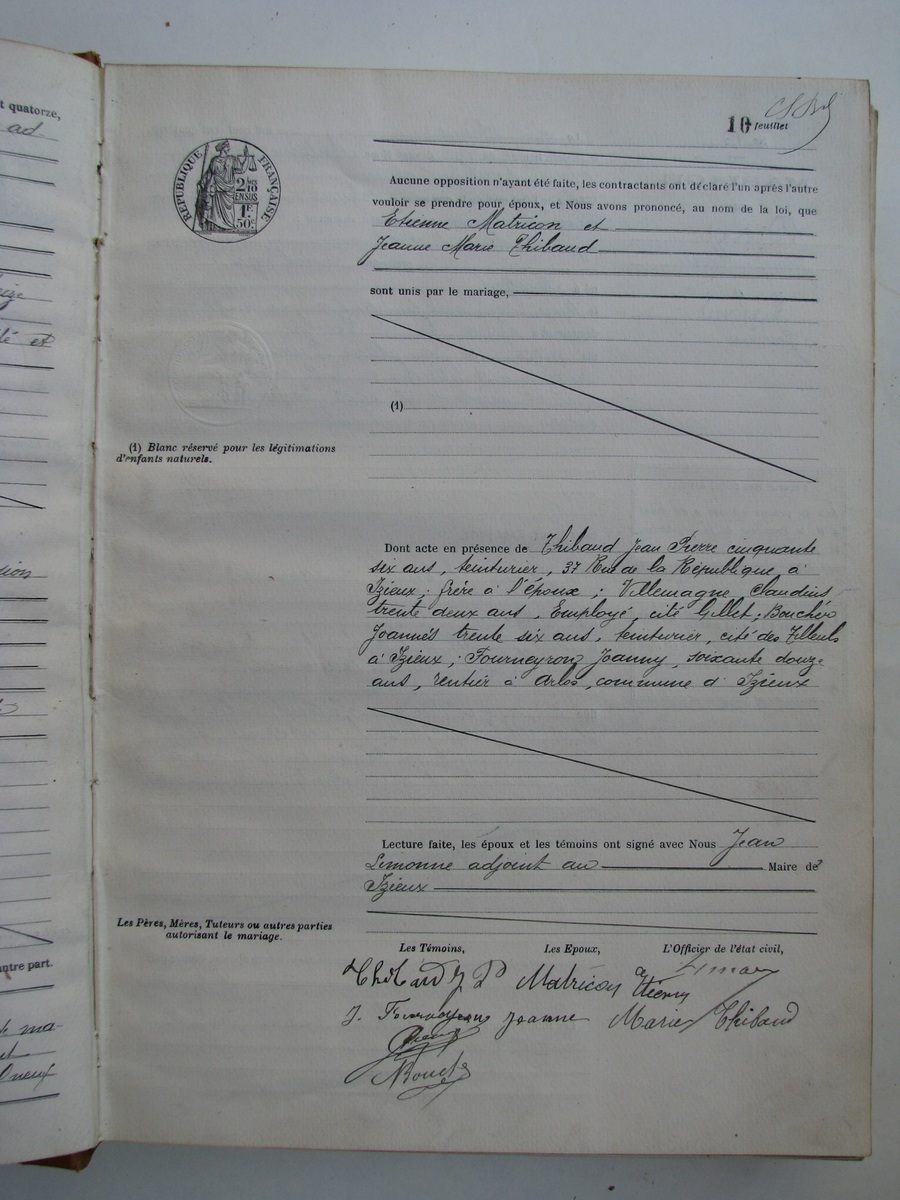 t quatorze,
ad
eize
lé et
sion
autre part.
ma-
10 feuillet
RÉPUBLIQUE FRANÇAISE
2/10
EN SUS
1F
50c
Aucune opposition n'ayant été faite, les contractants ont déclaré l'un après l'autre
vouloir se prendre pour époux, et Nous avons prononcé, au nom de la loi, que
Etienne Matricon et
Jeanne Marie Thibaud
sont unis par le mariage,
(1)
(1) Blanc réservé pour les légitimations
d'enfants naturels.
Dont acte en présence de Thibaud Jean Pierre cinquante
six ans, teinturier, 37 Rue de la République, à
Izieux; frère à l'époux; Villemagne Claudius
trente deux ans, Employé, cité Gillet; Bouchér
Joannès trente six ans, teinturier, cité des Tilleuls
à Izieux; Fourneyron Joanny, soixante douze
ans, rentier à Arlos, commune d'Izieux
Lecture faite, les époux et les témoins ont signé avec Nous Jean
Limonne adjoint au Maire de
Izieux
Les Pères, Mères, Tuteurs ou autres parties
autorisant le mariage.
Les Témoins, Les Epoux, L'Officier de l'état civil,
Thibaud J P Matricon Etienne
J. Fourneyron Jeanne Marie Thibaud